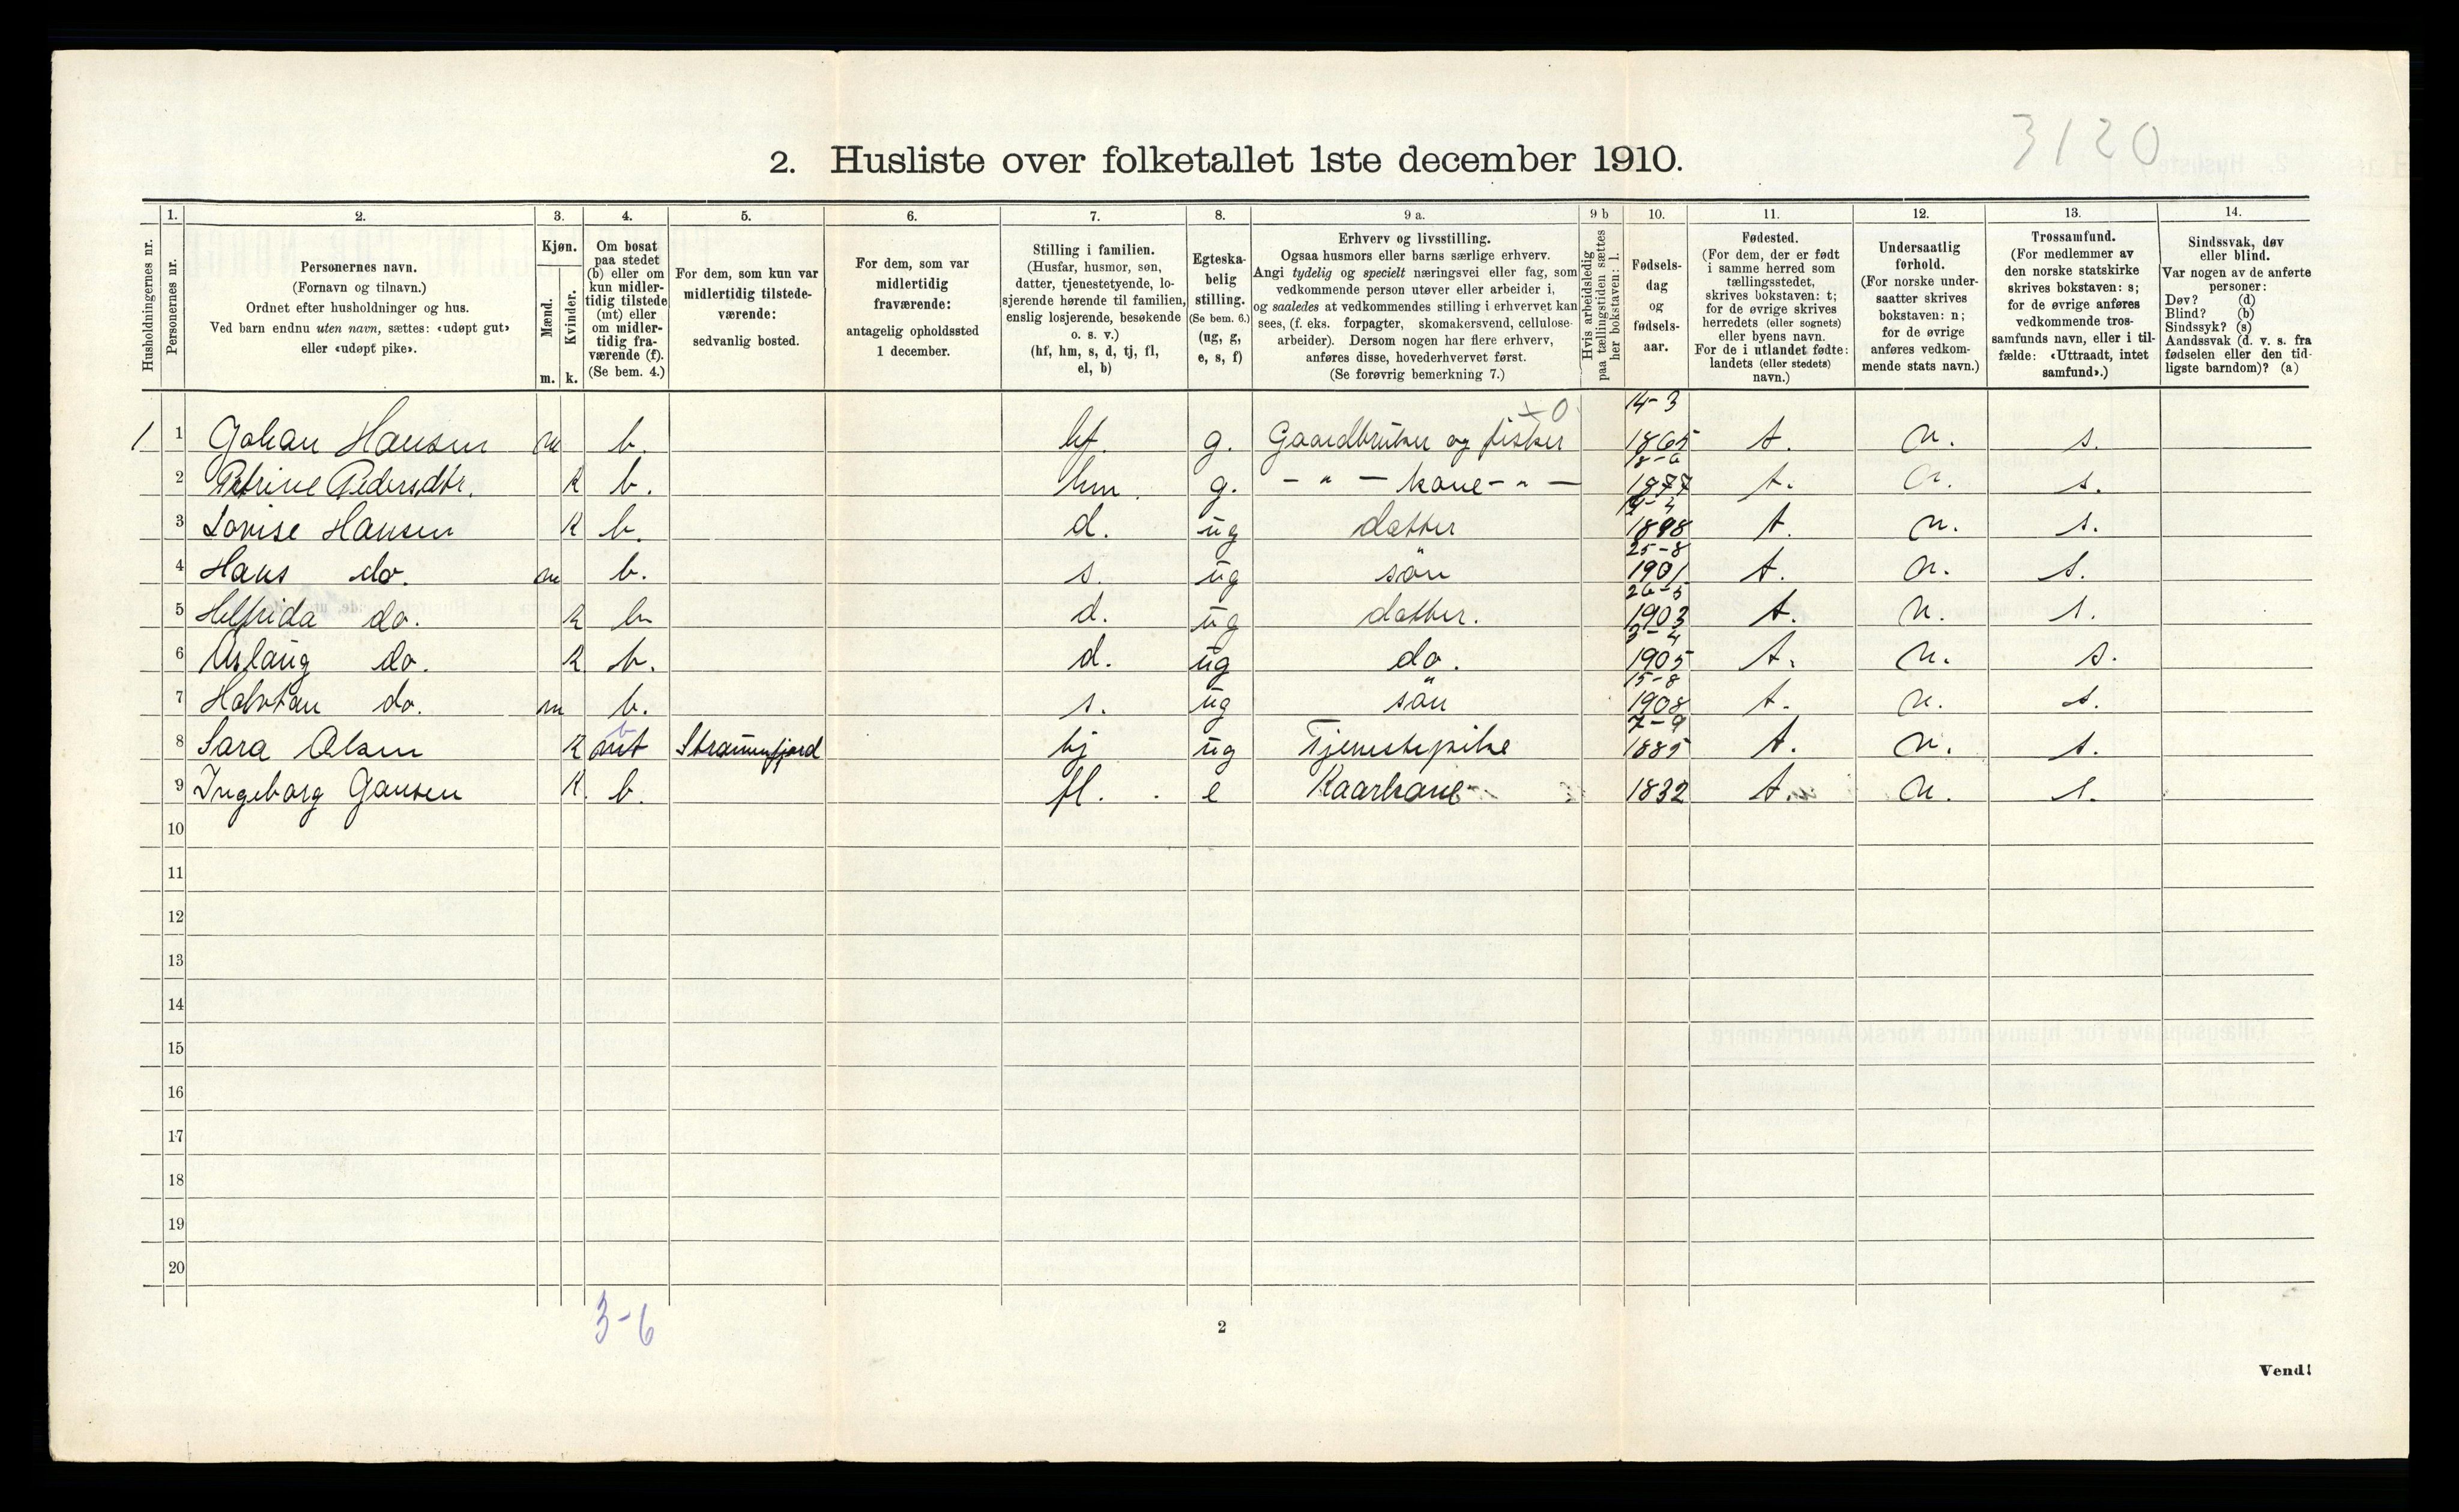 3120
2. Husliste over folketallet 1ste december 1910.
1. 2. 3. 4. 5. 6. 7. 8. 9 a. 9 b 10. 11. 12. 13. 14.
Husholdningernes nr.
Personernes nr.
Personernes navn.
(Fornavn og tilnavn.)
Ordnet efter husholdninger og hus.
Ved barn endnu uten navn, sættes: «udøpt gut»
eller «udøpt pike».
Kjøn.
Mænd.
Kvinder.
m. k.
Om bosat
paa stedet
(b) eller om
kun midler-
tidig tilstede
(mt) eller
om midler-
tidig fra-
værende (f).
(Se bem. 4.)
For dem, som kun var
midlertidig tilstede-
værende:
sedvanlig bosted.
For dem, som var
midlertidig
fraværende:
antagelig opholdssted
1 december.
Stilling i familien.
(Husfar, husmor, søn,
datter, tjenestetyende, lo-
sjerende hørende til familien,
enslig losjerende, besøkende
o. s. v.)
(hf, hm, s, d, tj, fl,
el, b)
Egteska-
belig
stilling.
(Se bem. 6.)
(ug, g,
e, s, f)
Erhverv og livsstilling.
Ogsaa husmors eller barns særlige erhverv.
Angi tydelig og specielt næringsvei eller fag, som
vedkommende person utøver eller arbeider i,
og saaledes at vedkommendes stilling i erhvervet kan
sees, (f. eks. forpagter, skomakersvend, cellulose-
arbeider). Dersom nogen har flere erhverv,
anføres disse, hovederhvervet først.
(Se forøvrig bemerkning 7.)
Hvis arbeidsledig
paa tællingstiden sættes
her bokstaven: l.
Fødsels-
dag
og
fødsels-
aar.
Fødested.
(For dem, der er født
i samme herred som
tællingsstedet,
skrives bokstaven: t;
for de øvrige skrives
herredets (eller sognets)
eller byens navn.
For de i utlandet fødte:
landets (eller stedets)
navn.)
Undersaatlig
forhold.
(For norske under-
saatter skrives
bokstaven: n;
for de øvrige
anføres vedkom-
mende stats navn.)
Trossamfund.
(For medlemmer av
den norske statskirke
skrives bokstaven: s;
for de øvrige anføres
vedkommende tros-
samfunds navn, eller i til-
fælde: «Uttraadt, intet
samfund».)
Sindssvak, døv
eller blind.
Var nogen av de anførte
personer:
Døv? (d)
Blind? (b)
Sindssyk? (s)
Aandssvak (d. v. s. fra
fødselen eller den tid-
ligste barndom)? (a)
1 1 Johan Hansen m b. hf. g. Gaardbruker og fisker 14-3 1865 t. n. s.
2 Petrine Pedersdtr. K b. hm. g. - " - kone - " - 18-6 1877 t. n. s.
3 Lovise Hansen K b. d. ug datter 1898 t. n. s.
4 Hans do. m b. s. ug søn 25-8 1901 t. n. s.
5 Helfrida do. K b d. ug datter. 26-5 1903 t. n. s.
6 Aslaug do. K b. d. ug do. 3-4 1905 t. n. s.
7 Halvtan do. m b. s. ug søn 15-8 1908 t. n. s.
8 Sara Olsen K mt b Straumfjord tj ug Tjenestepike 7-9 1885 t. n. s.
9 Ingeborg Jansen K. b. fl. e Kaarkone 1832 t. n. s.
10
11
12
13
14
15
16
17
18
19
20
3-6
2
Vend!